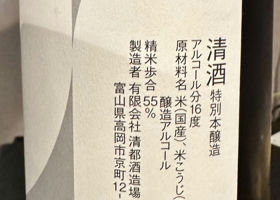 清酒 特別本醸造
アルコール分16度
原材料名 米(国産)、米こうじ(
醸造アルコール
精米歩合 55%
製造者 有限会社 清都酒造場
富山県高岡市京町12-